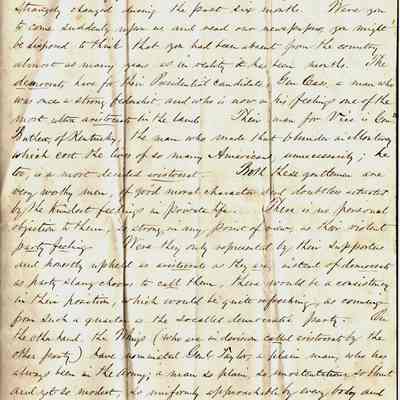 strangely changed during the past six months. Were you
to come suddenly upon us and read our newspapers you might
be disposed to think that you had been absent from the country
almost as many years as in reality it has been months. The
democrats have for their Presidential candidate Gen Cass, a man who
was once a strong federalist and who is now in his feelings one of the
most ultra aristocrats in the land. Their man for Vice is Gen
Butler, of Kentucky, the man who made that blunder in Monterey
which cost the lives of so many Americans, unnecessarily; he
too, is a most decided aristocrat. Both these gentlemen are
very worthy men, of good moral character and doubtless actuated
by the kindest feelings in private life. There is no personal
objection to them, so strong, in my point of view, as their violent
party feeling. Were they only represented by their supporters
and honestly upheld as aristocrats as they are, instead of democrats
as party slang chooses to call them, there would be a consistency
in their position, which would be quite refreshing, as coming
from such a quarter as the so called democratic party. On
the other hand, the Whigs (who are in derision called aristocrats by the
other party) have nominated Genl Taylor, a plain man, who has
always been in the army; a man so plain, so unostentatious so blunt
and yet so modest, so uniformly approachable by every body and